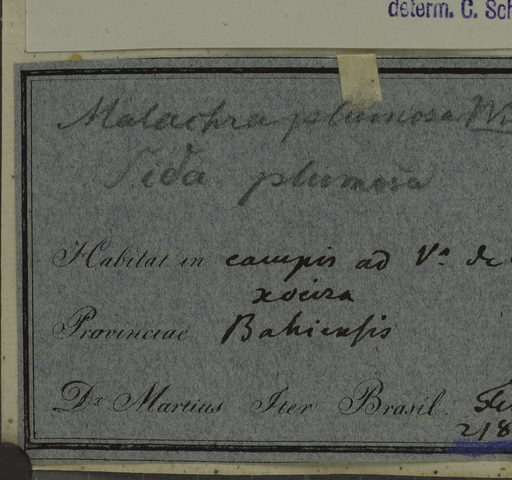 determ. C. Sch
Malachra plumosa
Sida plumosa
Habitat in campis ad Vª de
xoeira
Provinciae Bahiensis
Dr. Martius Iter Brasil.